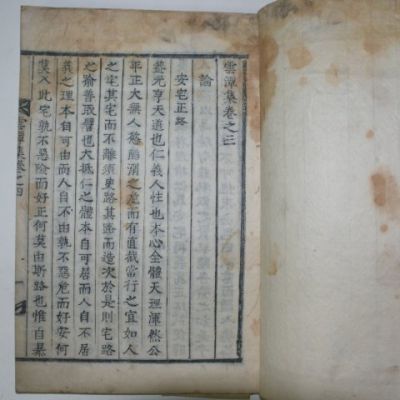 雲潭集卷之三
論
安宅正路
蓋元亨天道也仁義人性也本心全體天理渾然公
平正大無人欲陷溺之危而有直截當行之宜如人
之宅其宅而不離須臾路其路而造次於是則宅路
之喻善取譬也大抵仁之體本自可居而人自不居
義之理本自可由而人自不由孰不惡危而好安何
莫入此宅孰不惡險而好正何莫由斯路也惟自暴
雲潭集卷之四